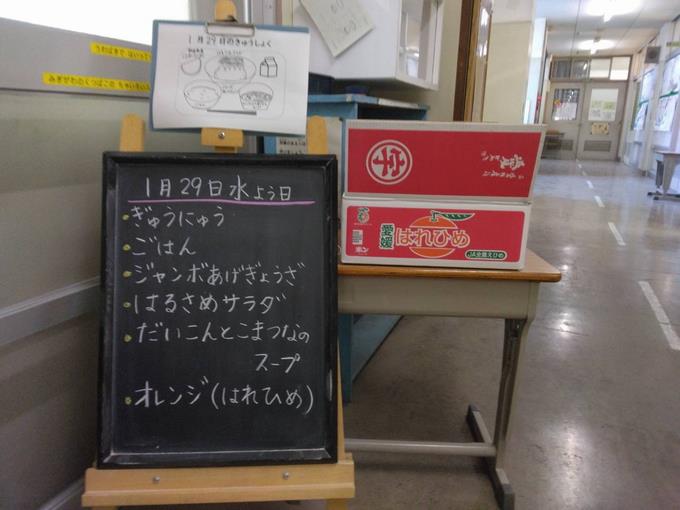 1月29日のきゅうしょく
うわばきで はいって
みぎがわのくつばこの
1月29日水よう日
ぎゅうにゅう
ごはん
ジャンボあげぎょうざ
はるさめサラダ
だいこんとこまつなの
スープ
オレンジ(はれひめ)
愛媛
はれひめ
JA全農えひめ